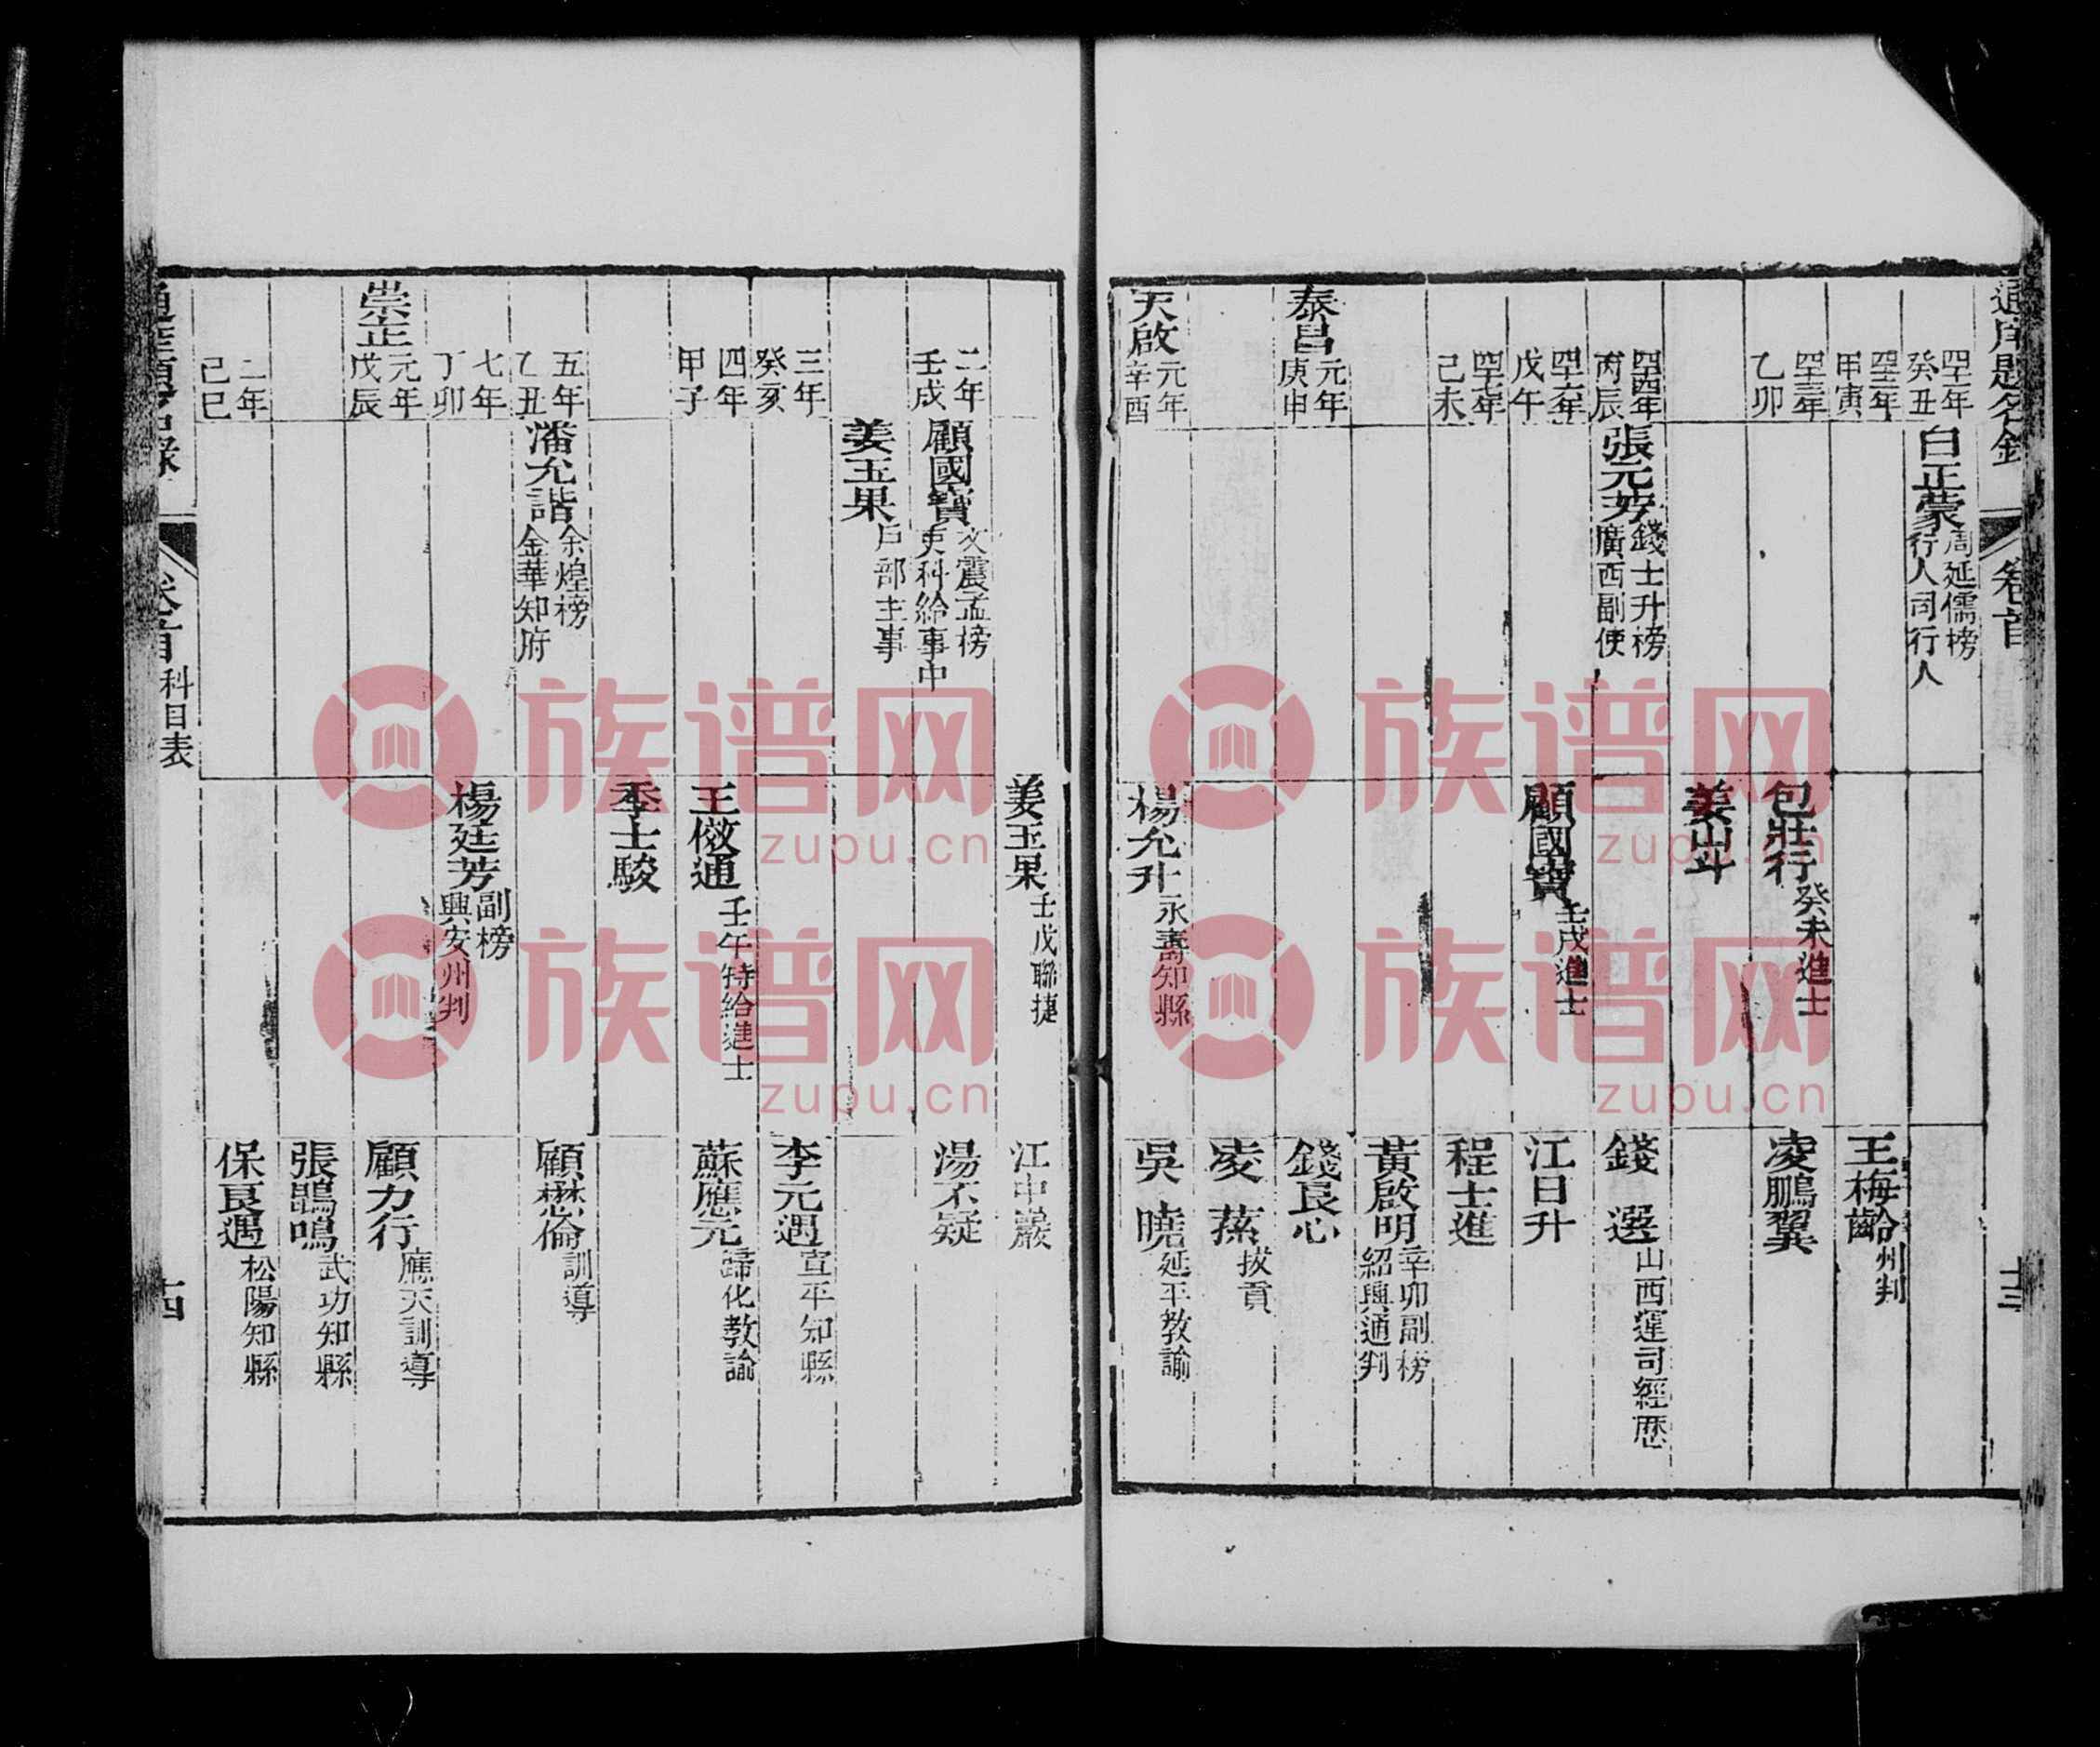 通庠題名錄 卷首 十三
四十一年癸丑 白正蒙 周延儒榜 行人司行人
四十二年甲寅 王梅齡 州判
四十三年乙卯 包壯行 癸未進士 凌鵬翼
姜山斗
四十四年丙辰 張元芳 錢士升榜 廣西副使 錢選 山西運司經歷
四十六年戊午 顧國寶 壬戌進士 江日升
四十七年己未 程士進
黃啟明 辛卯副榜 紹興通判
泰昌元年庚申 錢良心
凌蓀 拔貢
天啟元年辛酉 楊允升 永壽知縣 吳曉 延平教諭
姜玉果 壬戌聯捷 江中巖
二年壬戌 顧國寶 文震孟榜 吏科給事中 湯不疑
姜玉果 戶部主事
三年癸亥 李元遇 宣平知縣
四年甲子 王儆通 壬午特給進士 蘇應元 歸化教諭
季士駿
五年乙丑 潘允諧 余煌榜 金華知府 顧懋倫 訓導
七年丁卯 楊廷芳 副榜 興安州判
崇正元年戊辰 顧力行 應天訓導
張鵾鳴 武功知縣
二年己巳 保良遇 松陽知縣
通庠題名錄 卷首 科目表 十四
族谱网
zupu.cn
族谱网
zupu.cn
族谱网
zupu.cn
族谱网
zupu.cn